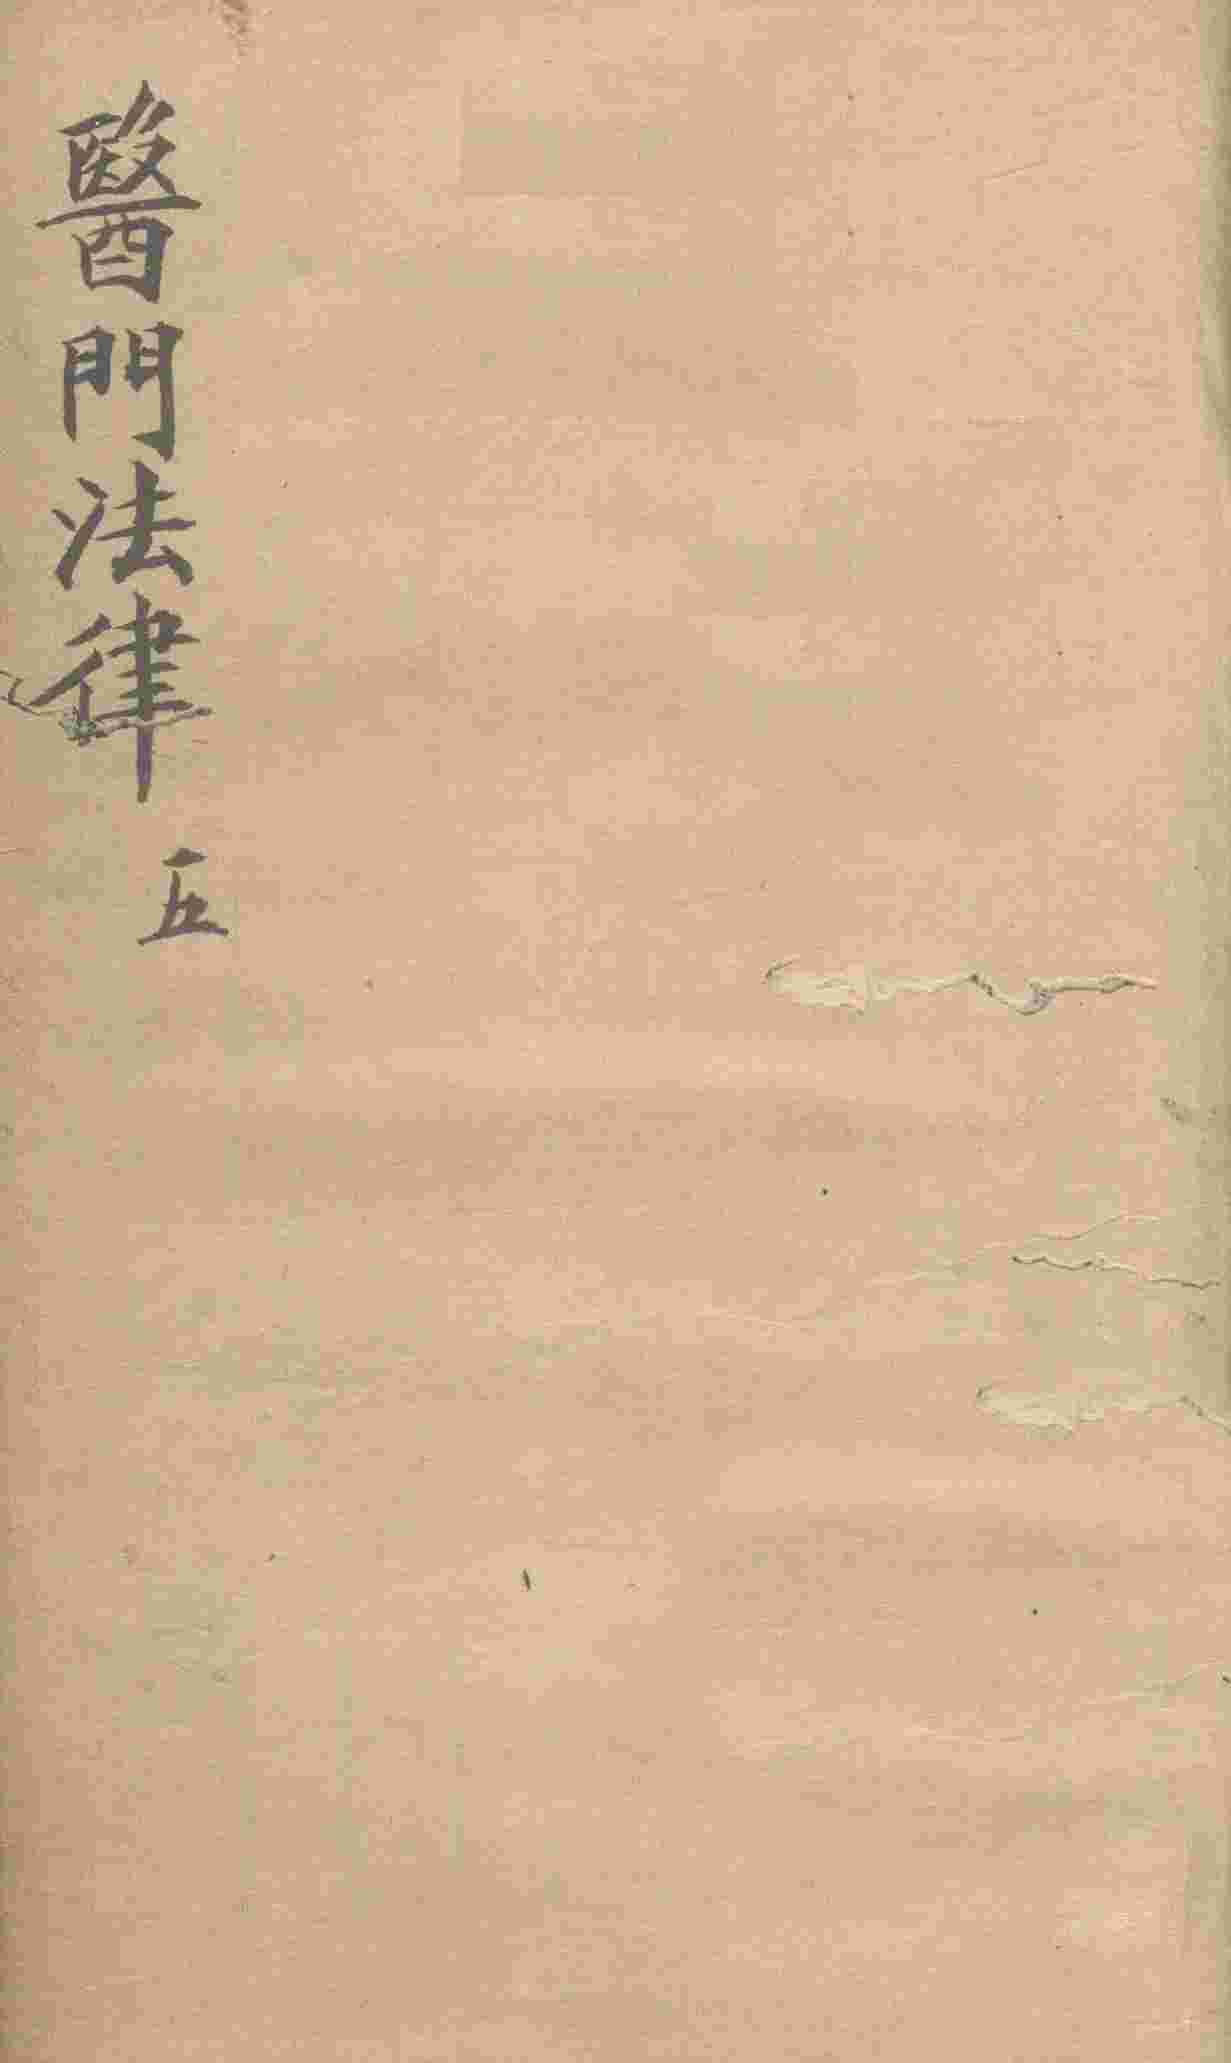 醫門法律 五